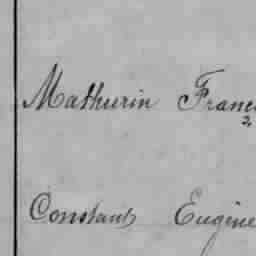 Mathurin Franc
2
Constant Eugène